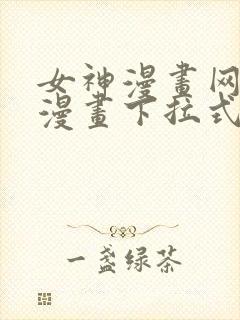 女神漫畫网
漫畫下拉式
一盏绿茶